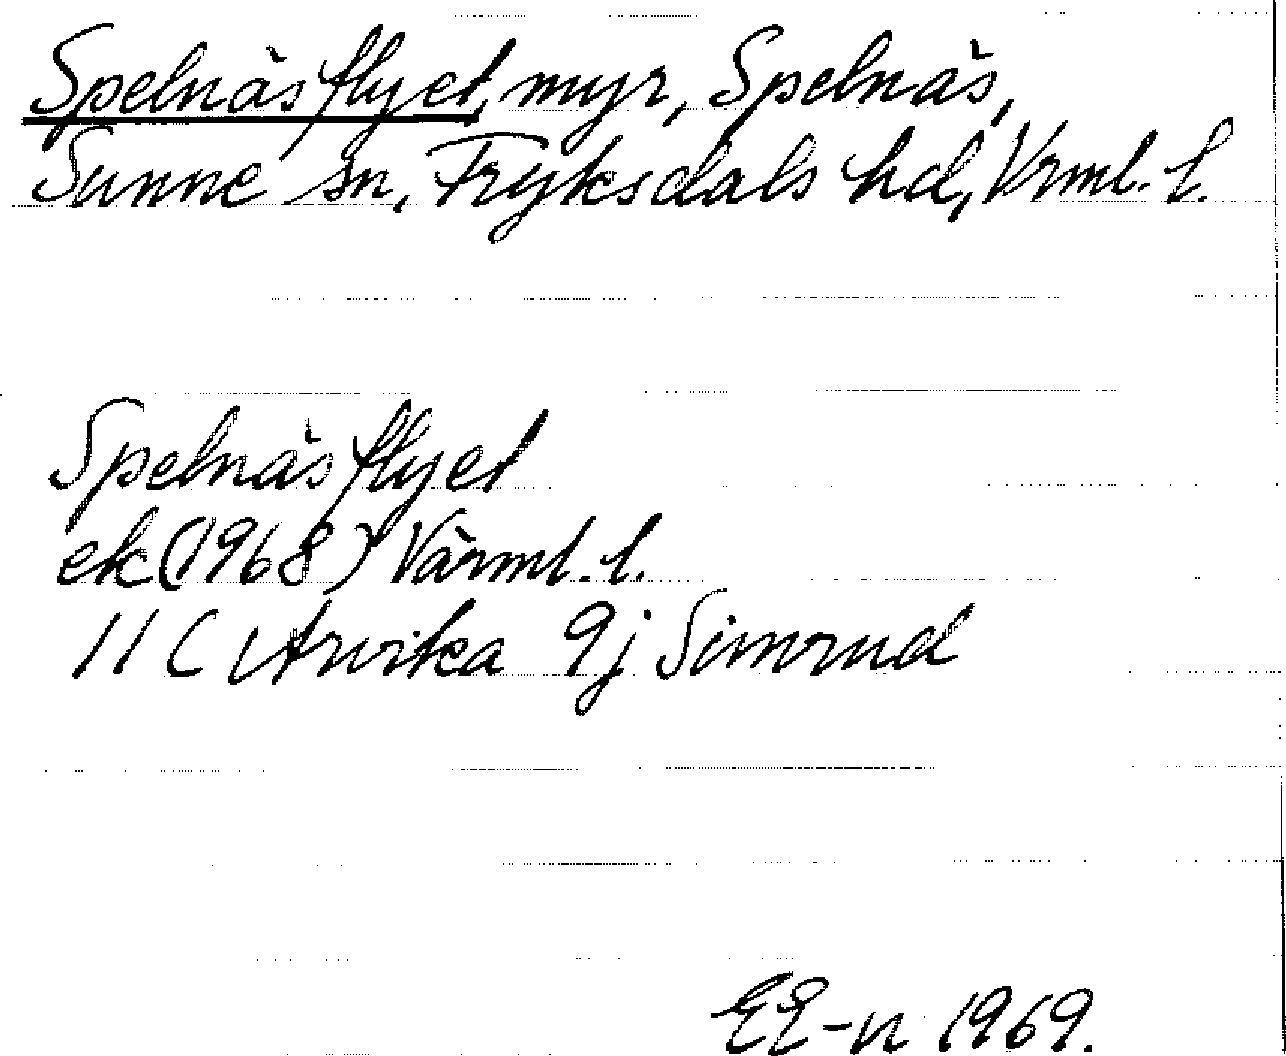 Spelnäsflyet, myr, Spelnäs,
Sunne sn, Fryksdals hd, Vrml. l.
Spelnäsflyet
ek (1968) Värml. l.
11 C Arvika 9j Simrud
EE-n 1969.